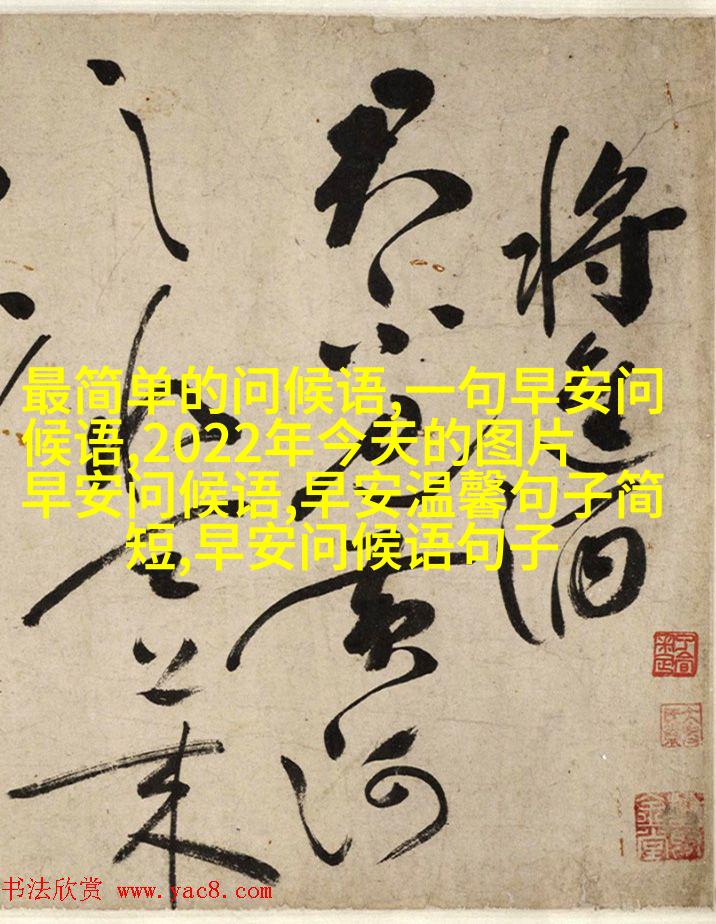 將進酒
君不見黃河
之水天上來
最简单的问候语,一句早安问
候语,2022年今天的图片
早安问候语,早安温馨句子简
短,早安问候语句子
书法欣赏 www.yac8.com